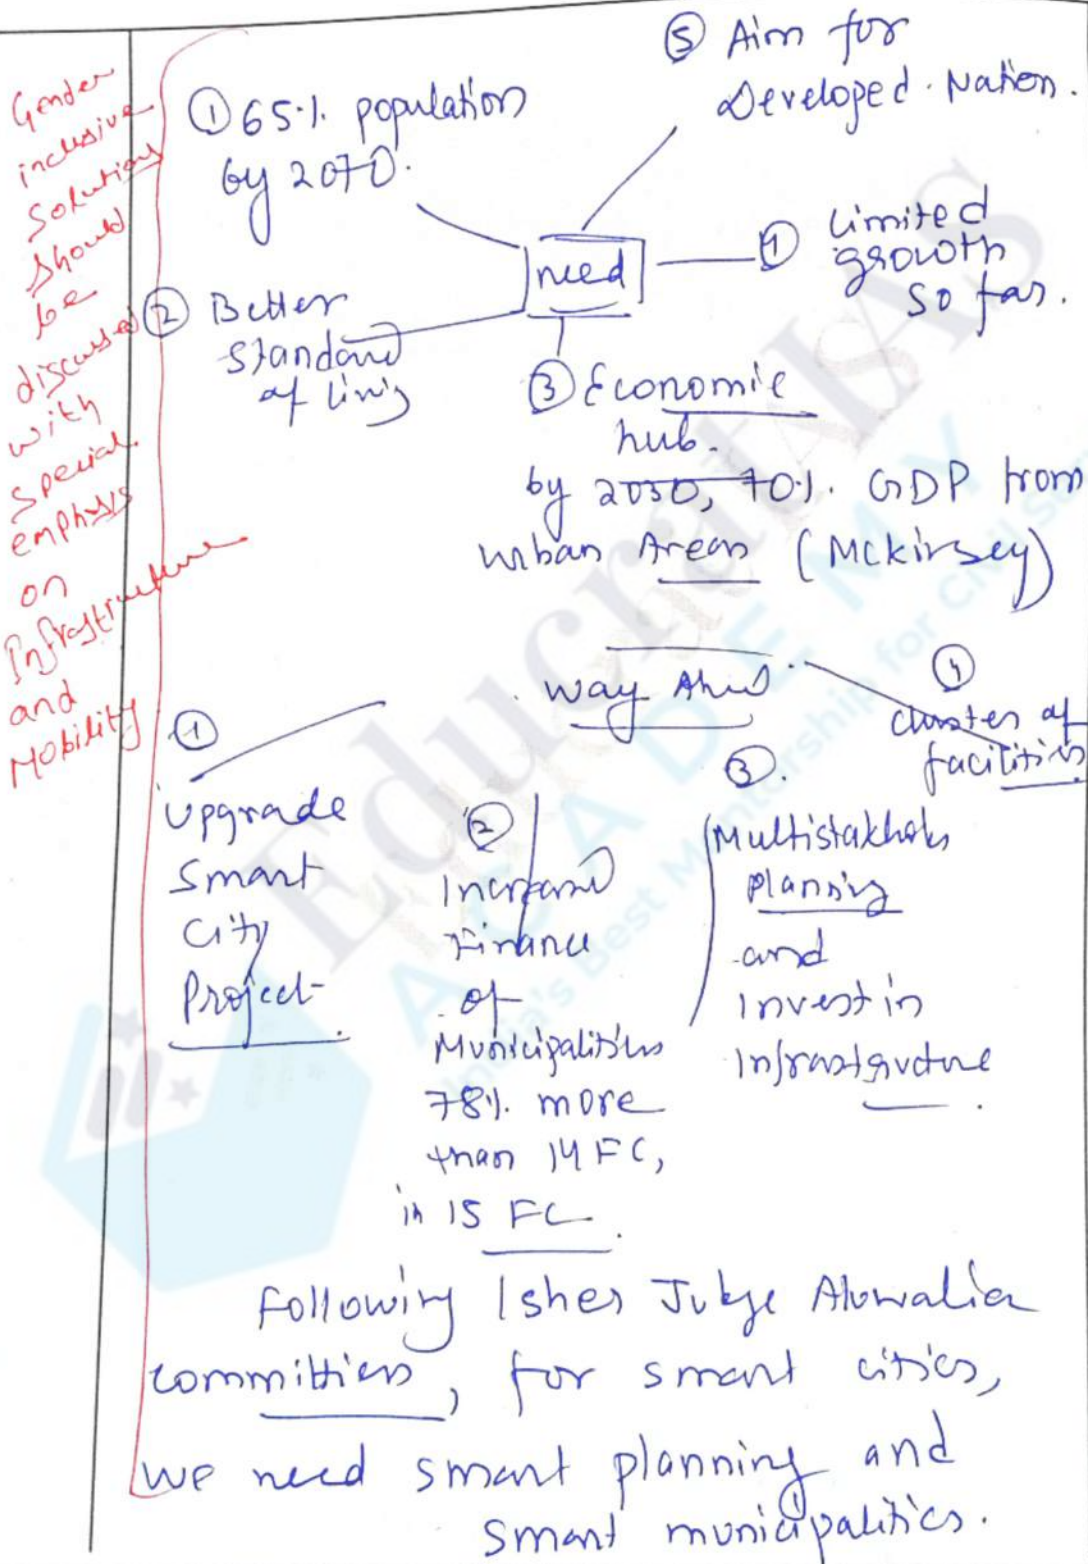 Gender
inclusive
Solutions
should
be
discussed
with
special
emphasis
on
Infrastructure
and
Mobility
① 65%. population
by 2070.
⑤ Aim for
Developed. Nation.
need
④ limited
growth
so far.
② Better
standard
of living
③ Economic
hub.
by 2030, 70%. GDP from
urban Areas (Mckinsey)
Way Ahead
①
Upgrade
Smart
City
Project
②
Increased
Finance
of
Municipalities
78%. more
than 14 FC,
in 15 FC.
③.
Multistakhols
planning
and
Invest in
Infrastructure
④
cluster of
facilities
Following Isher Judge Aluwalia
committies, for smart cities,
we need smart planning and
smart municipalities.
Educrat IAS
ACADEMY
India's Best Mentorship for Civil